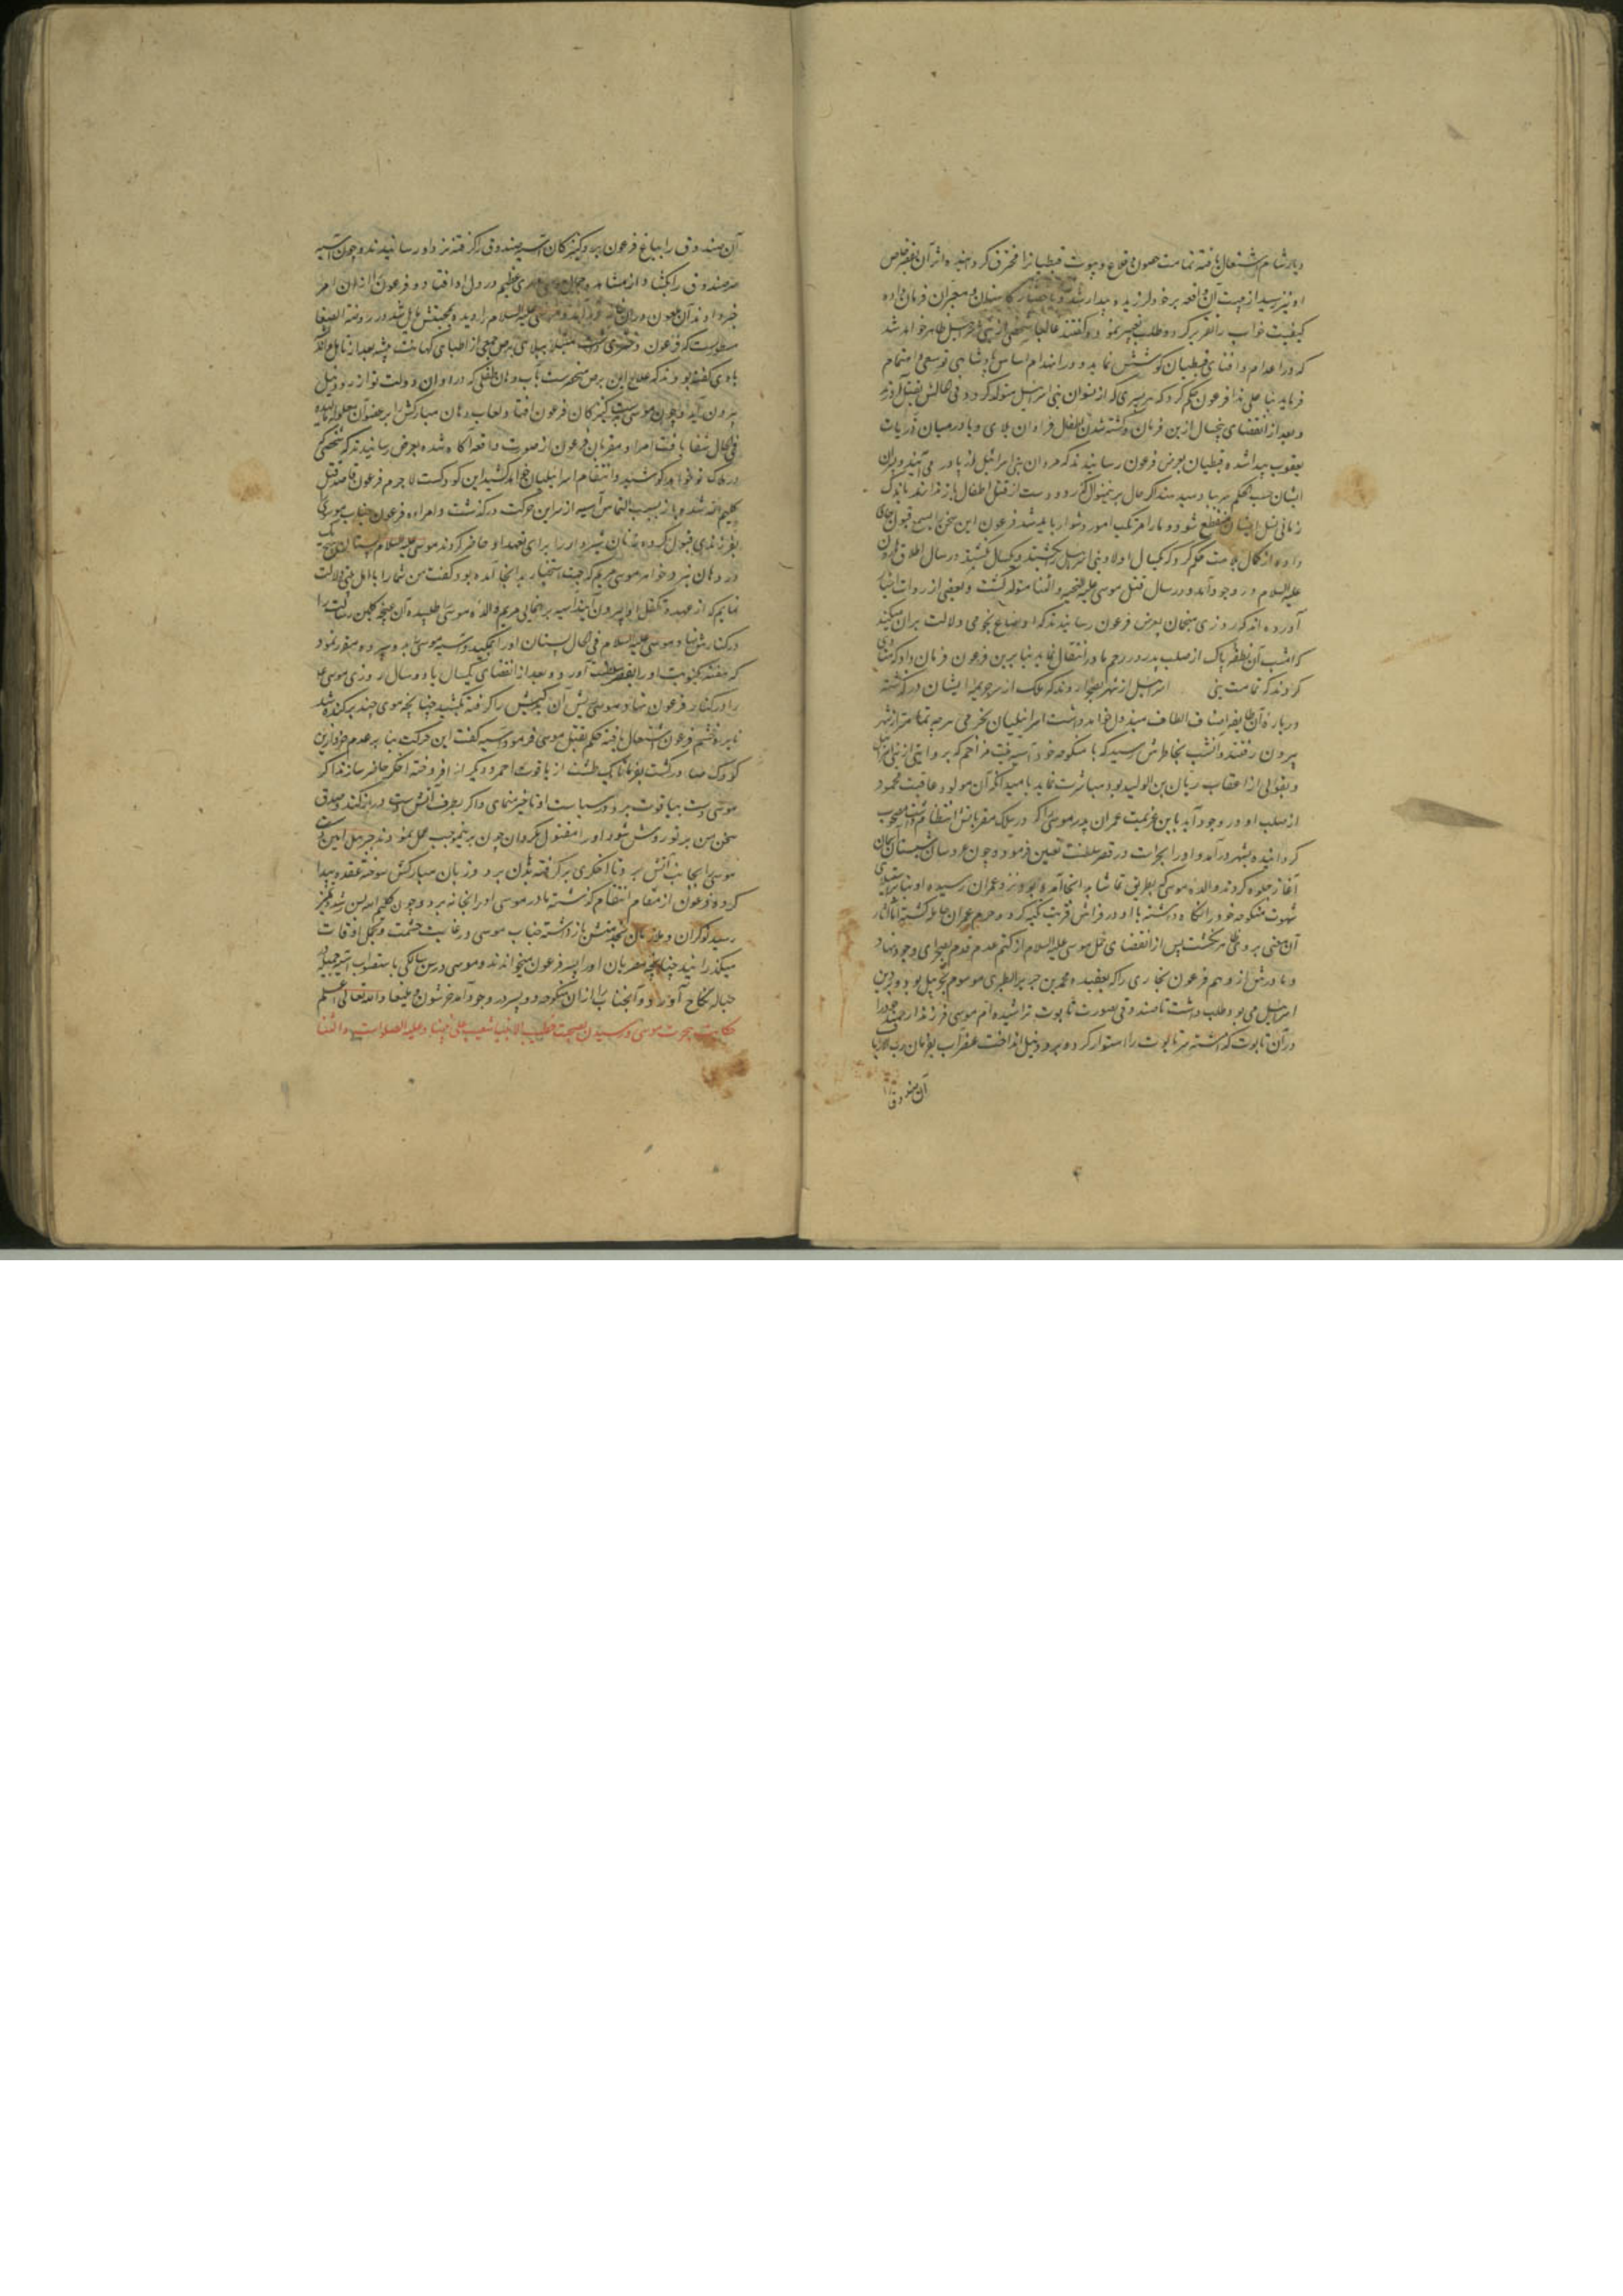 دیار شام اشتعال یافته تمامت حصون و قلاع و بیوت قبطیانرا محترق گردانیده اثر آن بقصر خاص
او نیز رسید از هیبت آن واقعه بر خود لرزیده بیدار شد و باحضار کاهنان و معبران فرمان داده
کیفیت خواب را تقریر کرد و طلب تعبیر نمود گفتند غالبا شخصی از بنی اسرائیل ظاهر خواهد شد
که در اعدام و افنای قبطیان کوشش نماید و در انهدام اساس پادشاهی تو سعی و اهتمام
فرماید بنا علی هذا فرعون حکم کرد که هر پسری که از نسوان بنی اسرائیل متولد گردد فی الحالش بقتل آورند
و بعد از انقضای پنجسال ازین فرمان و کشته شدن اطفال فراوان بلای وبا در میان ذریات
یعقوب پیدا شده قبطیان بعرض فرعون رسانیدند که مردان بنی اسرائیل از وبا در می‌آیند و پسران
ایشان حسب الحکم بقتل میرسند اگر حال برینمنوال گذرد و دست از قتل اطفال باز ندارند باندک
زمانی نسل ایشان منقطع شود و ما را مرتکب امور دشوار باید شد فرعون این سخن را بسمع قبول جای
داده از کمال حکم کرد که یکسال اولاد بنی اسرائیل بکشند و یکسال نکشند در سال اطلاق هارون
علیه السلام در وجود آمد و در سال قتل موسی علیه التحیه والثنا متولد گشت و بعضی از روات اخبار
آورده‌اند که روزی منجمان بعرض فرعون رسانیدند که اوضاع نجومی دلالت بران میکند
که امشب آن نطفه پاک از صلب پدر در رحم مادر انتقال نماید بنابرین فرعون فرمان داد که منادی
کردند که تمامت بنی اسرائیل از شهر بصحرا روند که ملک از سر جریمه ایشان در گذشته
درباره آن طایفه اصناف الطاف مبذول خواهد داشت اسرائیلیان بخرمی هر چه تمامتر از شهر
بیرون رفتند و آنشب بخاطرش رسید که با منکوحه خود آسیه بنت مزاحم که بروایتی از بنی اسرائیل
و بقولی از اعقاب ریان بن الولید بود مباشرت نماید بامید آنکه آن مولود عاقبت محمود
از صلب او در وجود آید باین عزیمت عمران پدر موسی را که در سلک مقربانش انتظام داشت مصحوب
گردانیده بشهر درآمد و او را بحراست در قصر سلطنت تعیین فرمود و چون عروسان شبستان آسمان
آغاز جلوه کردند والده موسی که بطریق تماشا به آنجا آمده بود نزد عمران رسیده او بنابر استیلای
شهوت منکوحه خود را نگاه داشته با او در فراش قربت تکیه کرد و حرم عمران حامله گشته اما آثار
آن معنی بر وی ظاهر نگشت پس از انقضای حمل موسی علیه السلام از کتم عدم قدم بصحرای وجود نهاد
و مادرش از وهم فرعون نجاری را که بعقیده محمد بن جریر الطبری موسوم بحزبیل بود و در دین
اسرائیل می‌بود طلب داشت تا صندوقی بصورت تابوت تراشیده ام موسی فرزند ارجمند خود را
در آن تابوت گذاشته سر تابوت را استوار کرده برود نیل انداخت عنقریب بفرمان رب الارباب
آن صندوق
آن صندوق را بباغ فرعون برد و کنیزکان آسیه صندوق را گرفته نزد او رسانیدند و چون آسیه
سر صندوق را بگشاد از مشاهده جمال موسی مهری عظیم در دل او افتاد و فرعون را از ان امر
خبر داد آن ملعون در آن خانه در آمد و موسی علیه السلام را دیده بمحبتش مایل شد و در روضة الصفا
مسطورست که فرعون دختری داشت مبتلا ببلای برص جمعی از اطبای کهانت پیشه بعد از تامل و تفکر
با وی گفته بودند که علاج این برص منحصرست بآب دهان طفلی که در اوان دولت تو از رود نیل
بیرون آید و چون موسی بدست کنیزکان فرعون افتاد لعاب دهان مبارکش را بر عضو آن معلوله مالیده
فی الحال شفا یافت امرا و مقربان فرعون از صورت واقعه آگاه شده بعرض رسانیدند که شخصی که
در هلاک تو خواهد کوشید و انتقام اسرائیلیان خواهد کشید این کودکست لاجرم فرعون قاصد قتل
کلیم الله شد و باز بسبب التماس آسیه از سر این حرکت درگذشت و امراء فرعون جناب موسی را
بفرزندی قبول کرده زنان شیردار را برای تعهد او حاضر کردند موسی علیه السلام پستان هیچ یک
در دهان نبرد خواهر موسی مریم که بجهت استخبار به آنجا آمده بود گفت من شما را باهل بیتی دلالت
نمایم که از عهده تکفل او بیرون آیند آسیه براهنمائی مریم والده موسی طلبیده آن غنچه گلبن رسالت را
در کنارش نهاد موسی علیه السلام فی الحال پستان او را بمکید و آسیه موسی را بدو سپرده مقرر نمود
که هفته یک نوبت او را بقصر سلطنت آورد و بعد از انقضای یکسال یا دو سال روزی موسی علیه
را در کنار فرعون نهاد موسی ریش آن کبریش را گرفته بکشید چنانچه موی چند برکنده شد
نایره خشم فرعون اشتعال یافته حکم بقتل موسی فرمود آسیه گفت این حرکت بنابر عدم خرد ازین
کودک صادر گشت بفرما تا یک طشت از یاقوت احمر و دیگر از افروخته اخگر حاضر سازند اگر
موسی دست بیاقوت برد در سیاست او تاخیر منمای و اگر بطرف آتش دست دراز کند و صدق
سخن من بر تو روشن شود او را مقتول مگردان چون برینموجب عمل نمودند جبرئیل امین دست
موسی را بجانب آتش برد تا اخگری بر گرفته بدهن برد و زبان مبارکش سوخته عقده پیدا
کرده فرعون از مقام انتقام گذشته مادر موسی او را بخانه برد و چون کلیم الله بسن رشد و تمیز
رسید نوکران و ملازمان بخدمتش بازداشته جناب موسی در غایت حشمت و تجمل اوقات
میگذرانید چنانچه مقربان او را پسر فرعون میخواندند و موسی در سن سالگی باستصواب آسیه جمیله
حباله نکاح آورد و آنجناب را از آن منکوحه دو پسر در وجود آمد جرشون و یلیعا والله تعالی اعلم
حکایت هجرت موسی و رسیدن بصحبت خطیب الانبیا شعیب علی نبینا و علیه الصلوات والثنا